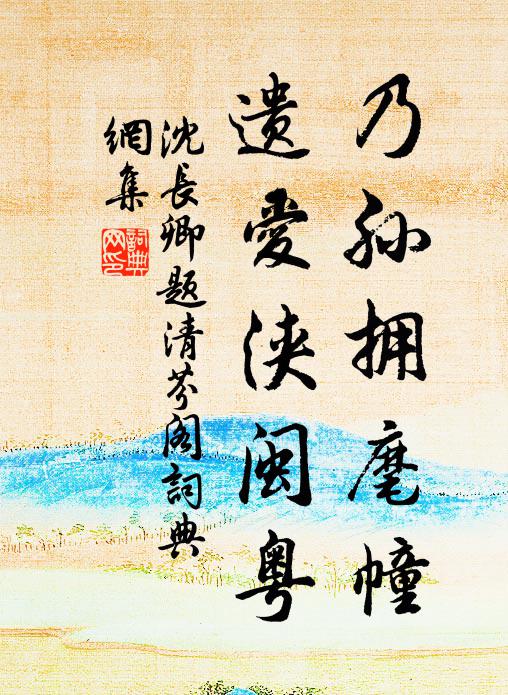 乃孙拥麾幢
遗爱浃闽粤
沈长卿题清芬阁词典
网集
词典网印